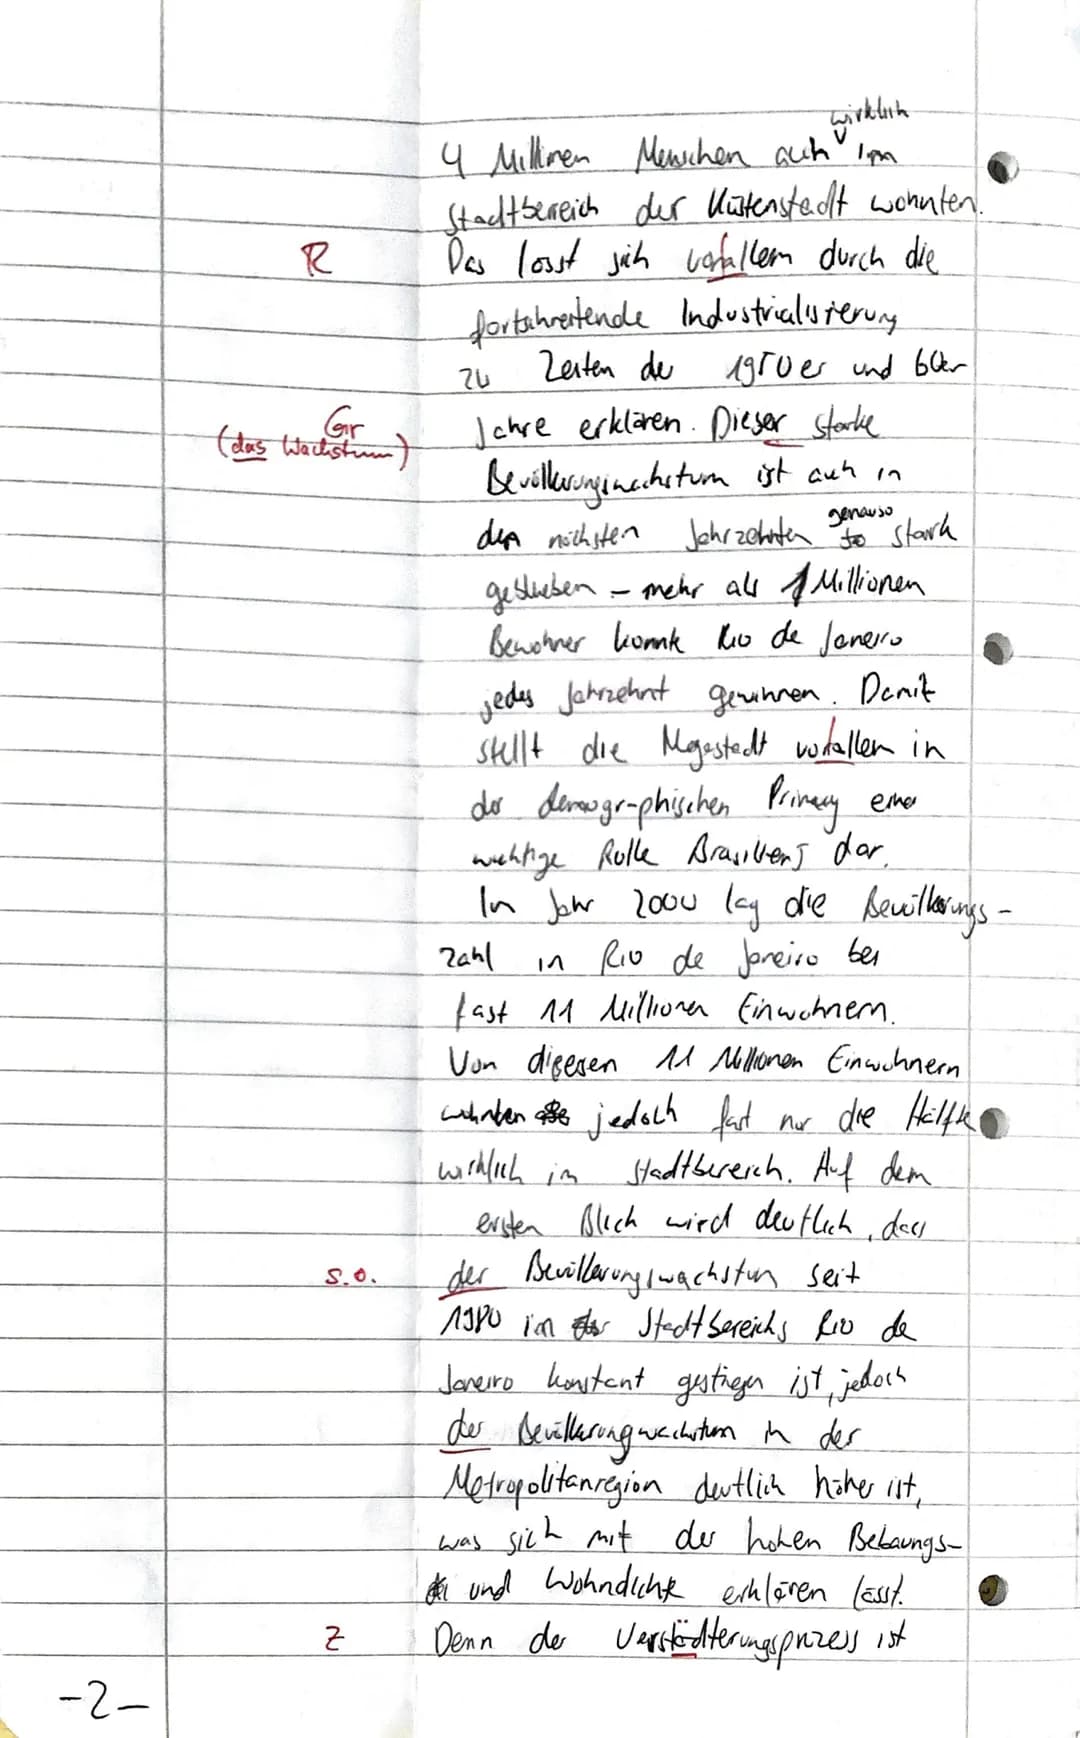 wirklich
4 Millionen Menschen auch im
Stadtbereich der Küstenstadt wohnten.
R Das lässt sich vorallem durch die
fortschreitende Industrialisierung
zu Zeiten der 1950er und 60er
Gr Jahre erklären. Dieser starke
(das Wachstum)
Bevölkerungswachstum ist auch in
den nächsten Jahrzehnten genauso stark
geblieben – mehr als 1 Millionen
Bewohner konnte Rio de Janeiro
jedes Jahrzehnt gewinnen. Damit
stellt die Megastadt vorallem in
der demographischen Primacy eine
wichtige Rolle Brasiliens dar.
Im Jahr 2000 lag die Bevölkerungs-
zahl in Rio de Janeiro bei
fast 11 Millionen Einwohnern.
Von diesen 11 Millionen Einwohnern
wohnten jedoch fast nur die Hälfte
wirklich im Stadtbereich. Auf dem
ersten Blick wird deutlich, dass
s.o. der Bevölkerungswachstum seit
1980 im Stadtbereichs Rio de
Janeiro konstant gestiegen ist, jedoch
der Bevölkerungwachstum in der
Metropolitanregion deutlich höher ist,
was sich mit der hohen Bebaungs-
und Wohndichte erklären lässt.
Z Denn der Verstädterungsprozess ist
-2-